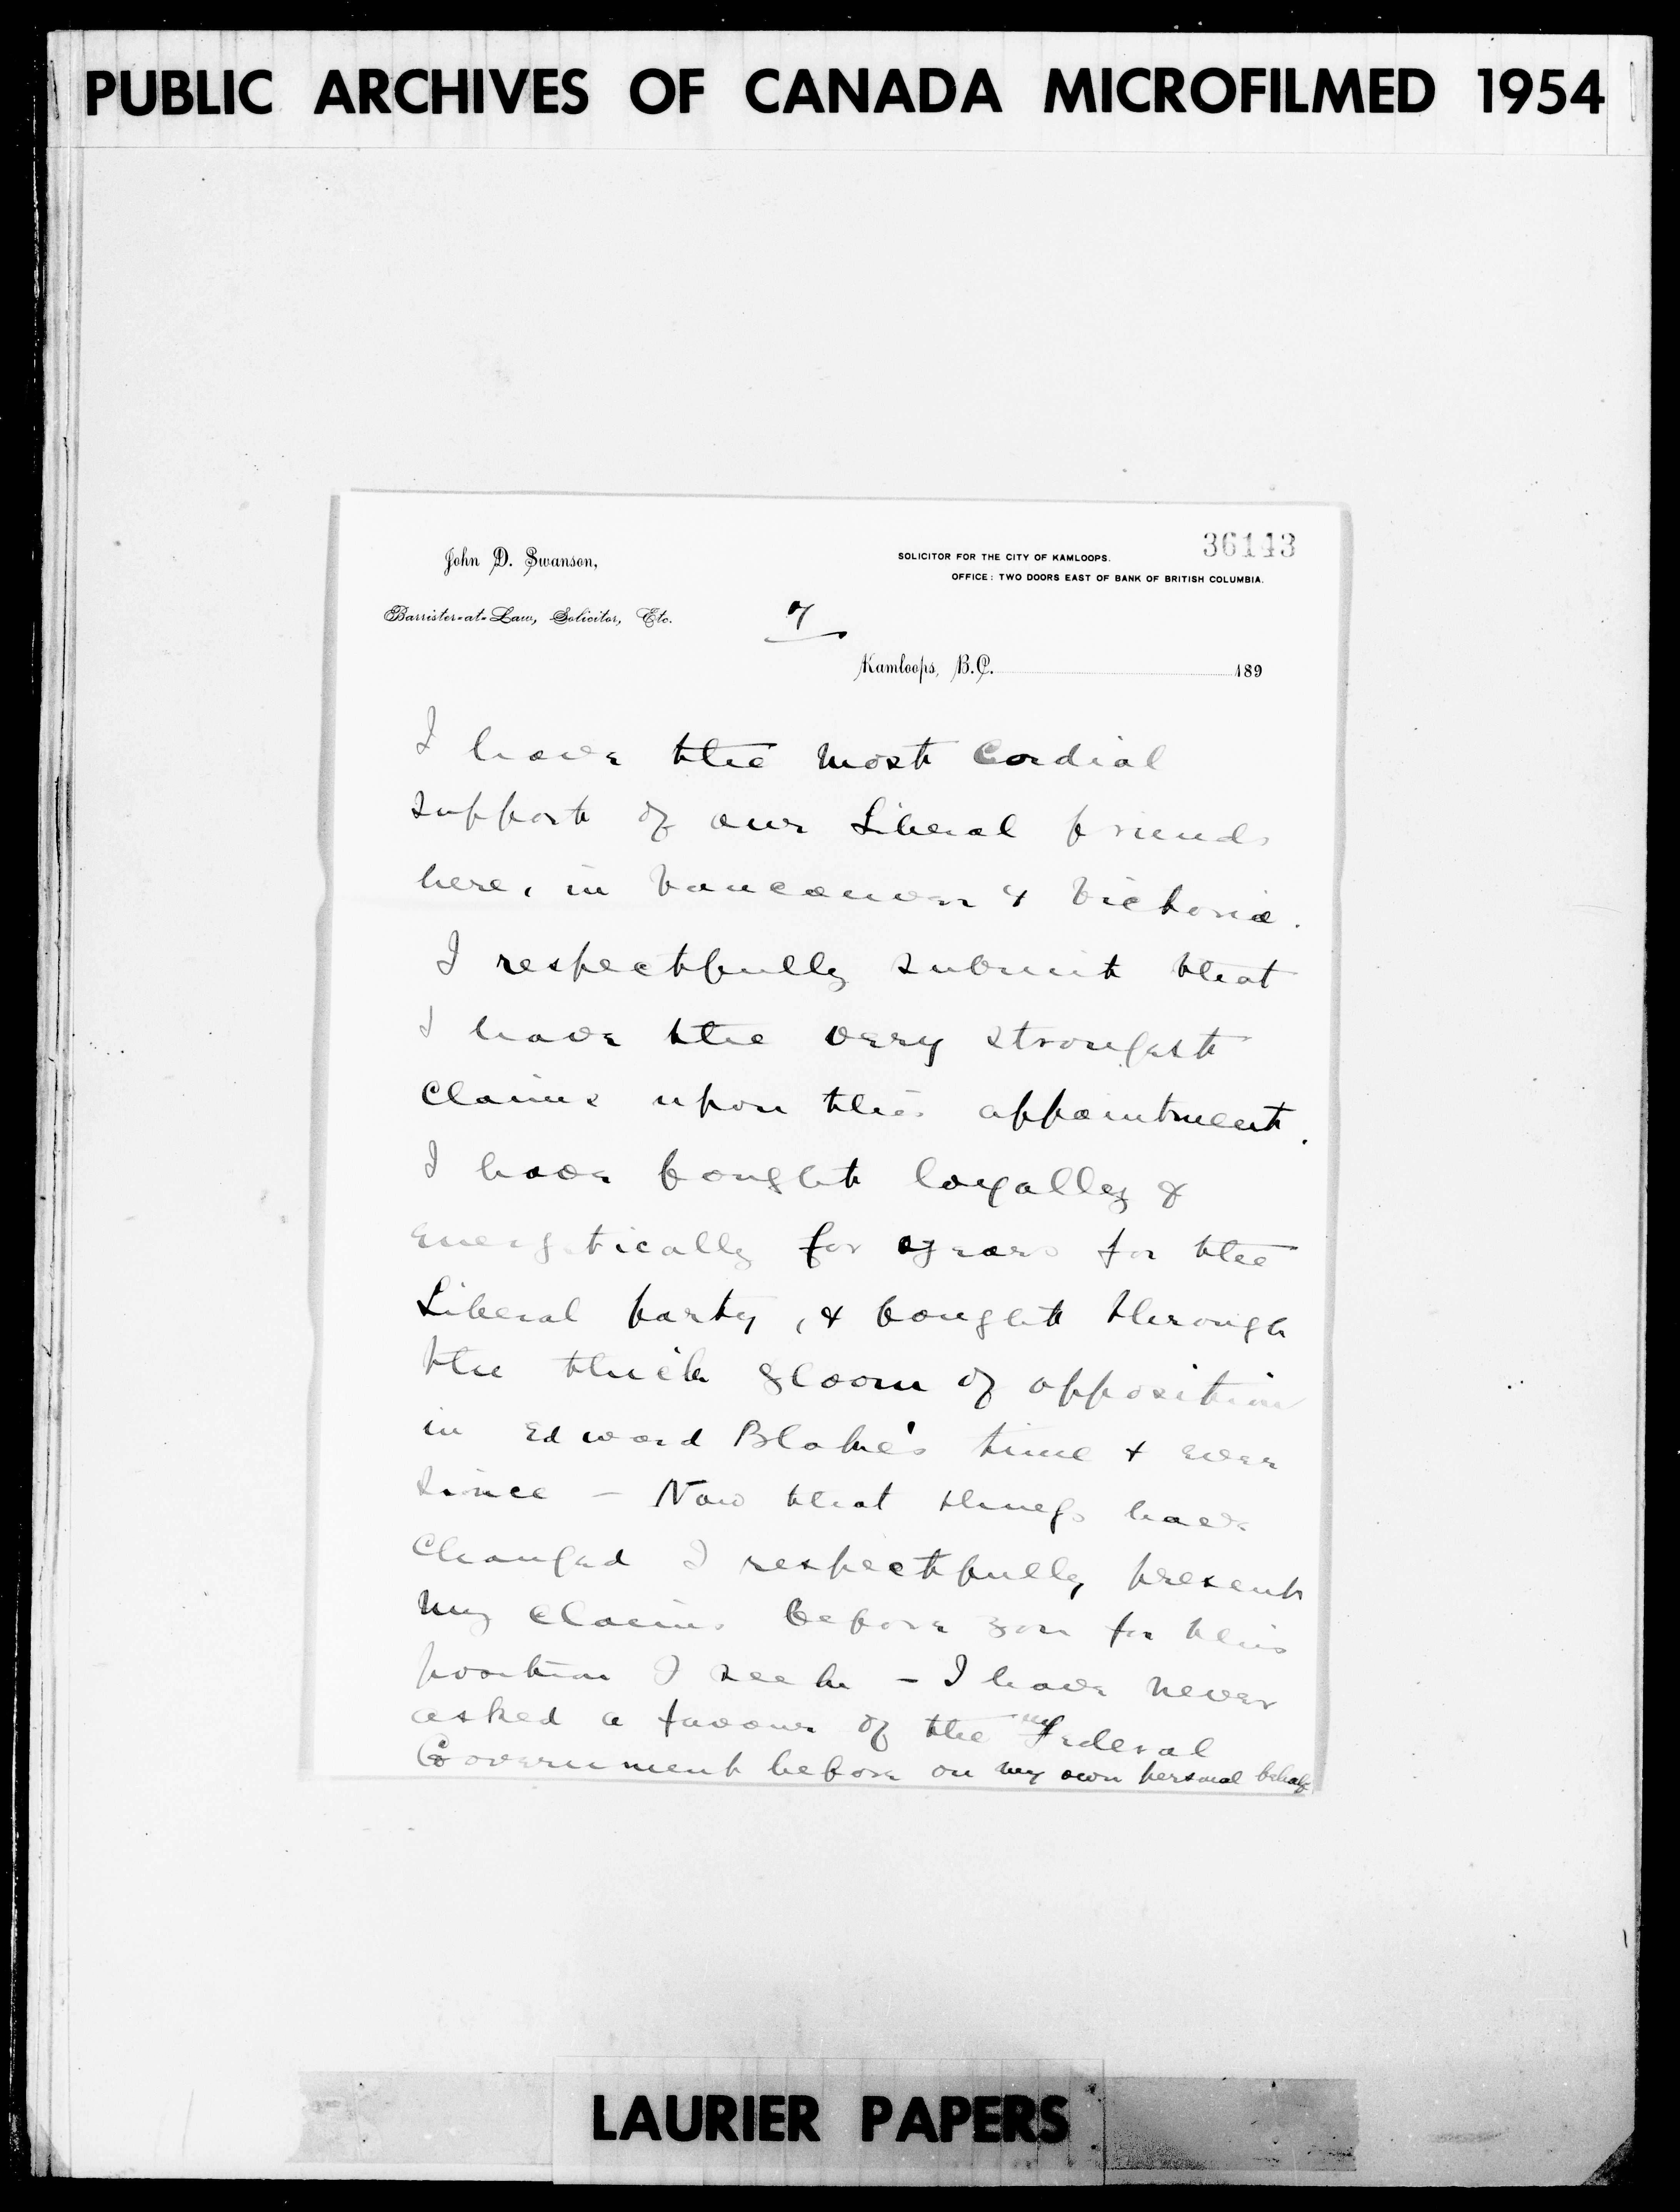 PUBLIC ARCHIVES OF CANADA MICROFILMED 1954
36143
John D. Swanson,
Barrister-at-Law, Solicitor, Etc.
SOLICITOR FOR THE CITY OF KAMLOOPS.
OFFICE: TWO DOORS EAST OF BANK OF BRITISH COLUMBIA.
7
Kamloops, B.C. 189
I have the most cordial
support of our Liberal friends
here, in Vancouver & Victoria.
I respectfully submit that
I have the very strongest
claims upon this appointment.
I have fought loyally &
energetically for years for the
Liberal party, & fought through
the thick gloom of opposition
in Edward Blake's time & ever
since – Now that things have
changed I respectfully present
my claims before you for this
position I seek – I have never
asked a favour of the Federal
Government before on my own personal behalf
LAURIER PAPERS